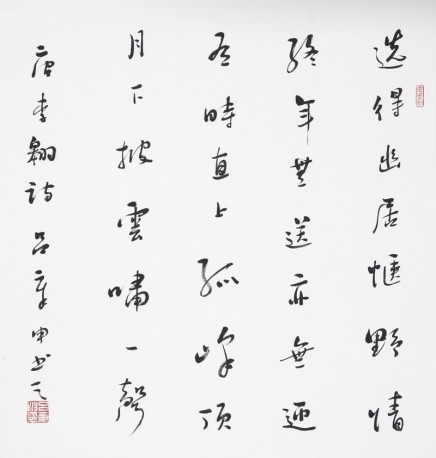 選得幽居惬野情
終年無送亦無迎
有時直上孤峰頂
月下披雲嘯一聲
唐李翱詩 吕章申书